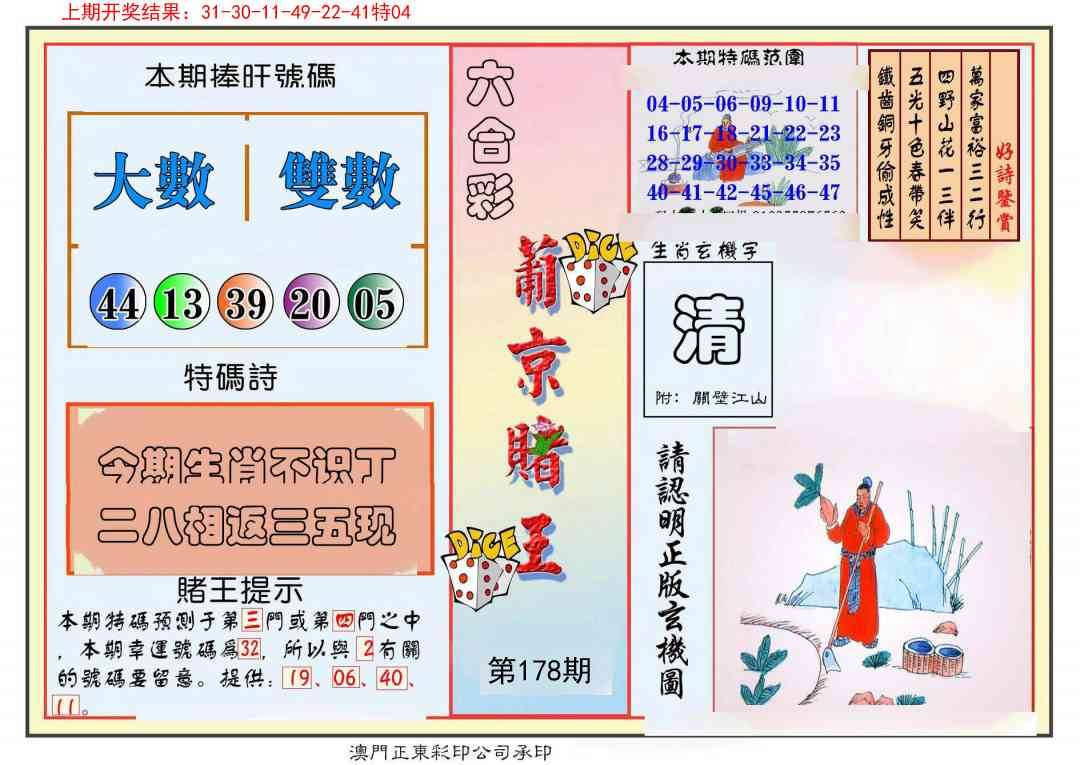 上期开奖结果：31-30-11-49-22-41特04
本期捧旰號碼
大數 雙數
44 13 39 20 05
特碼詩
今期生肖不识丁
二八相返三五现
賭王提示
本期特碼預測于第三門或第四門之中
，本期幸運號碼爲32，所以與2有關
的號碼要留意。提供：19、06、40、
11。
六合彩
DICE
葡京賭王
DICE
第178期
本期特碼范圍
04-05-06-09-10-11
16-17-18-21-22-23
28-29-30-33-34-35
40-41-42-45-46-47
好詩鑒賞
萬家富裕三二行
四野山花一三伴
五光十色春帶笑
鐵齒銅牙偷成性
生肖玄機字
清
附：關壁江山
請認明正版玄機圖
澳門正東彩印公司承印